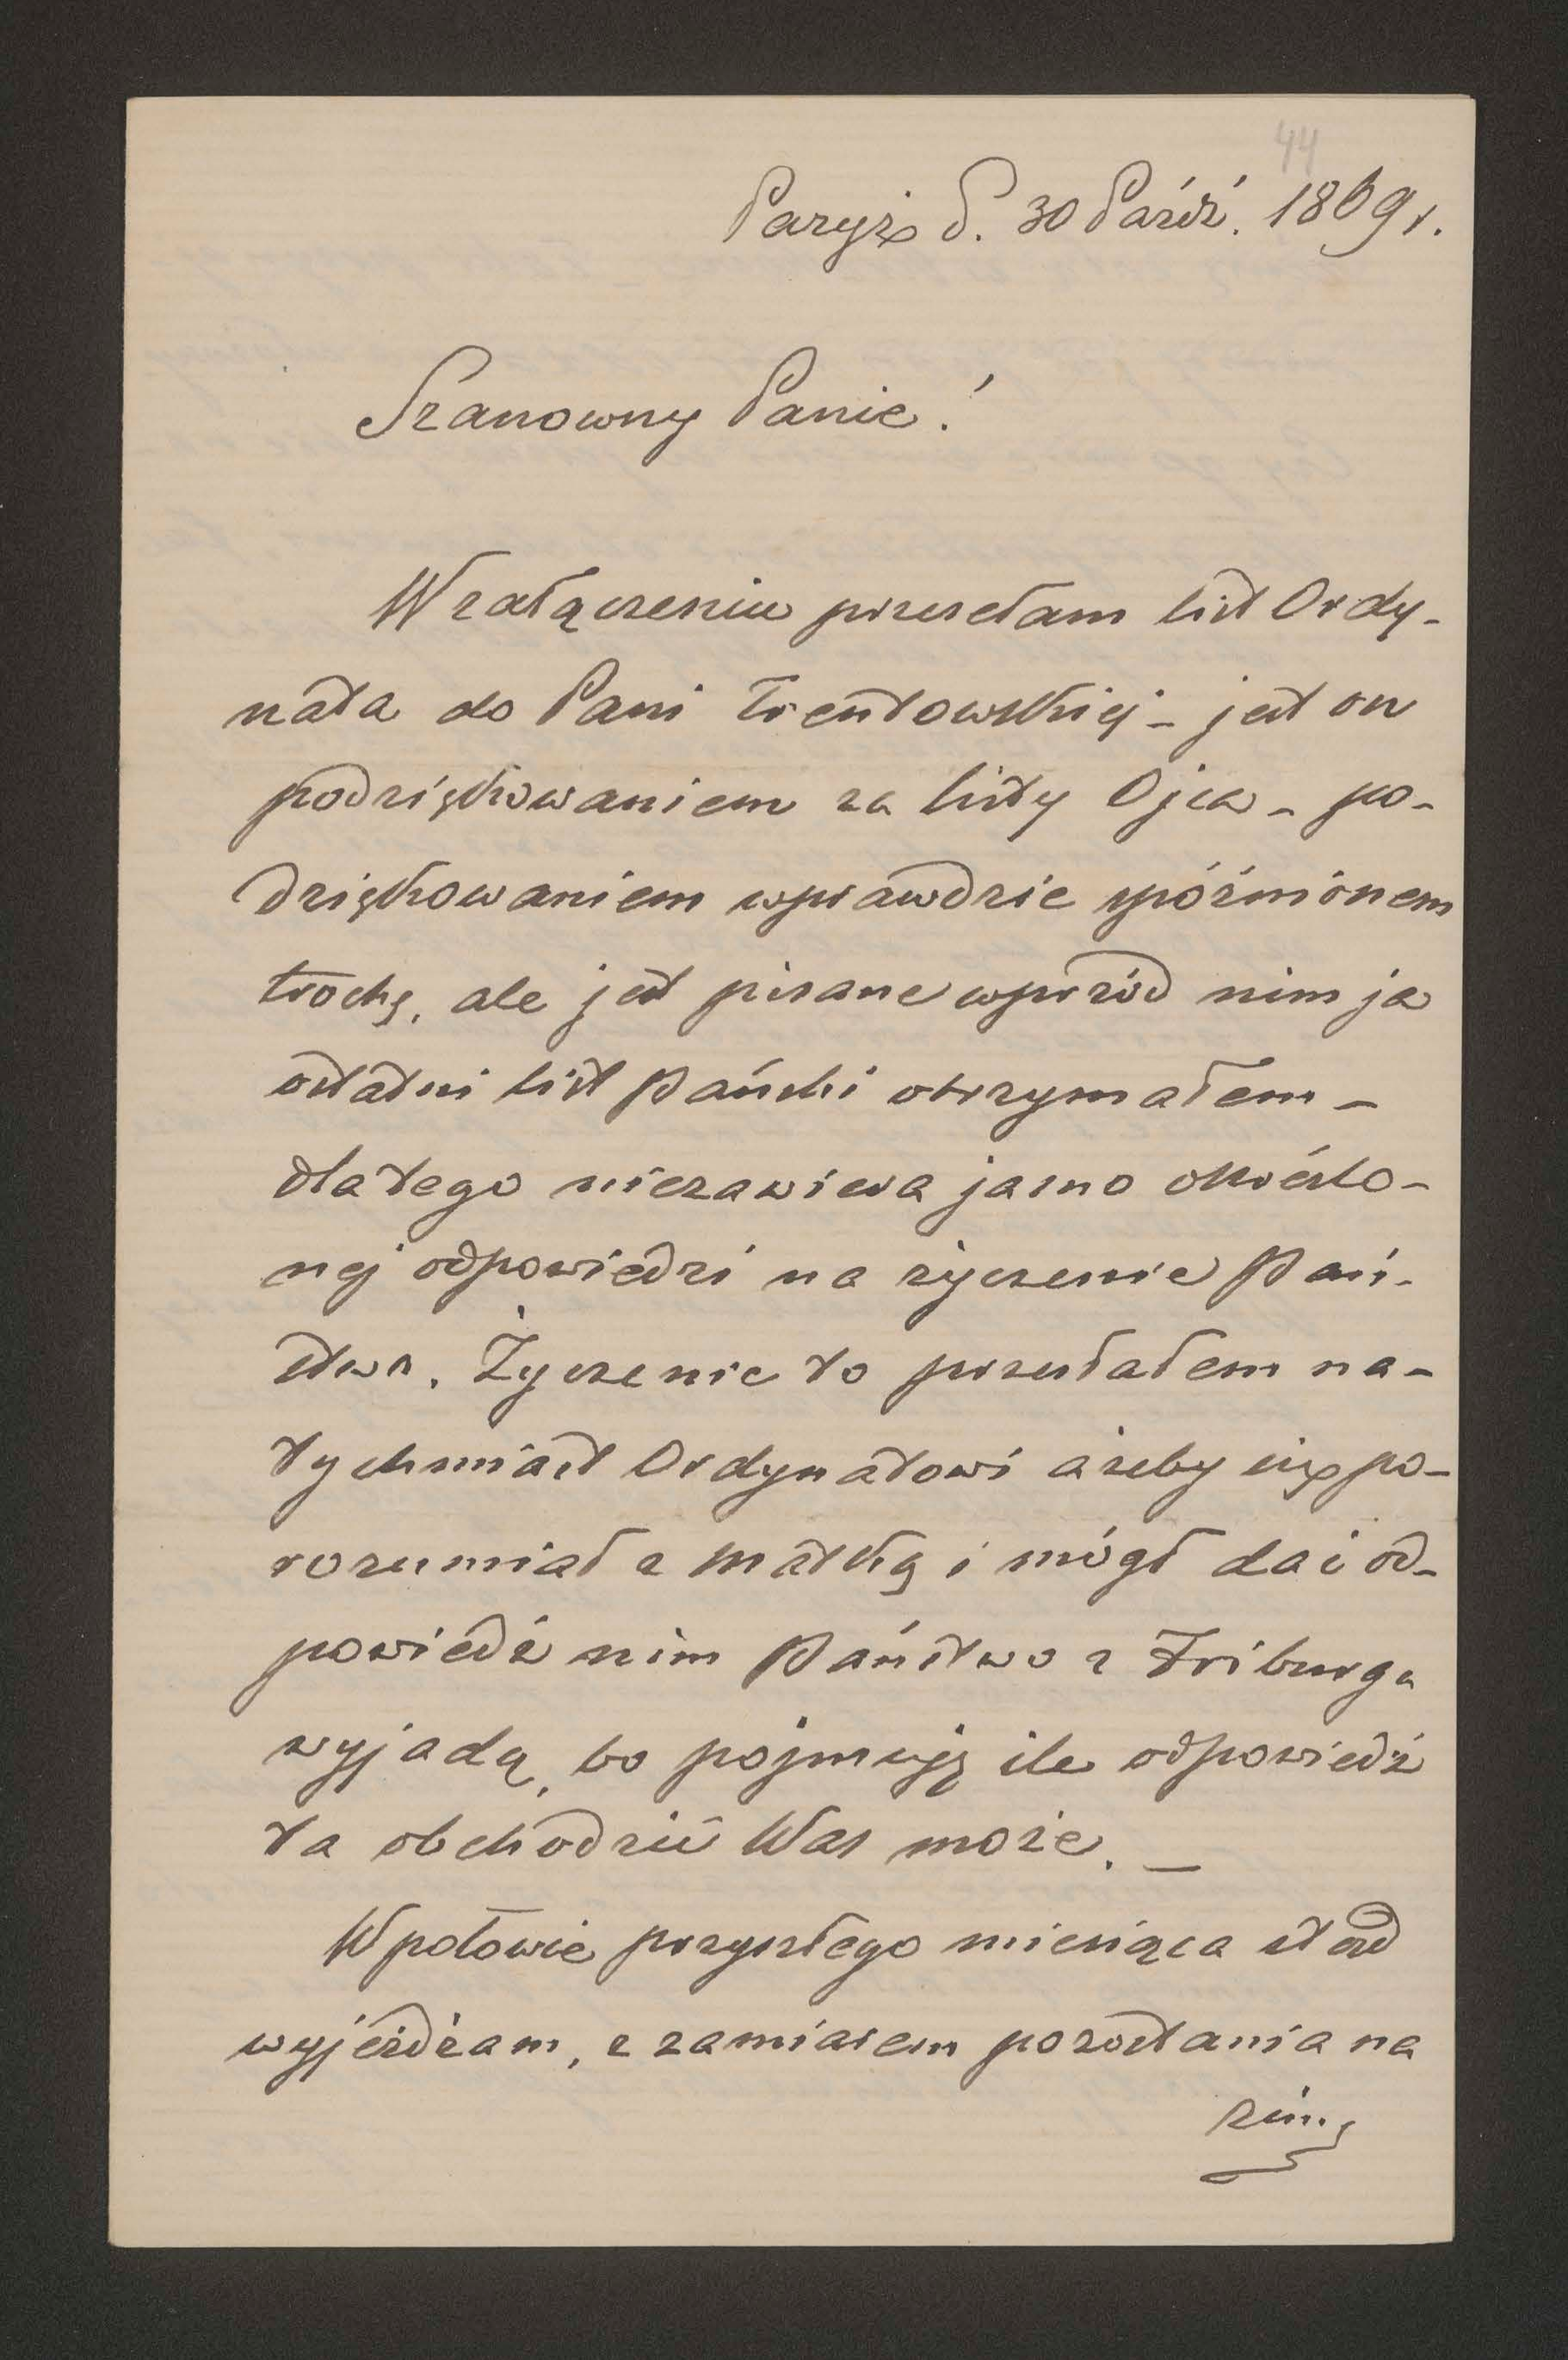 44
Paryż d. 30 Paźdź. 1869 r.
Szanowny Panie!
W załączeniu przesełam list Ordy-
nata do Pani Trentowskiej – jest on
podziękowaniem za listy Ojca – po-
dziękowaniem wprawdzie spóźnionem
trochę, ale jest pisane wprzód nim ja
ostatni list Pański otrzymałem –
dlatego niezawiera jasno okréslo-
nej odpowiedzi na życzenie Pań-
stwa. Życzenie to przesłałem na-
tychmiast Ordynatowi ażeby się po-
rozumiał z Matką i mógł dać od-
powiedź nim Państwo z Friburga
wyjadą, bo pojmuję ile odpowiedź
ta obchodzić Was może. –
W połowie przyszłego miesiąca ztąd
wyjeżdżam, z zamiarem pozostania na
zimę